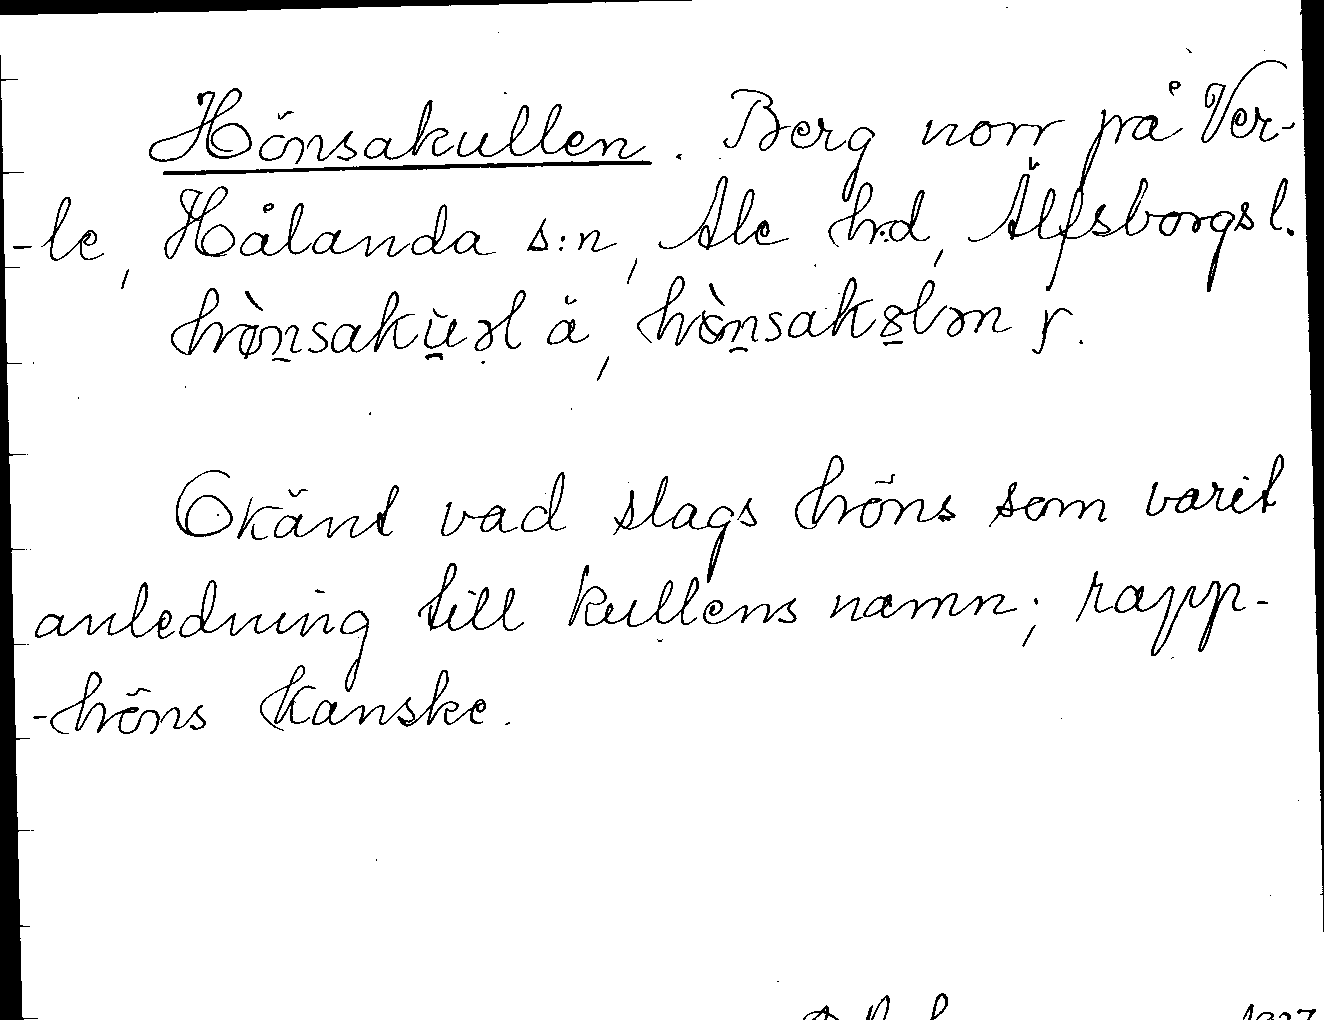 Hönsakullen. Berg norr på Ver-
-le, Hålanda s:n, Ale hd, Älfsborgs l.
Okänt vad slags höns som varit
anledning till kullens namn; rapp-
-höns kanske.